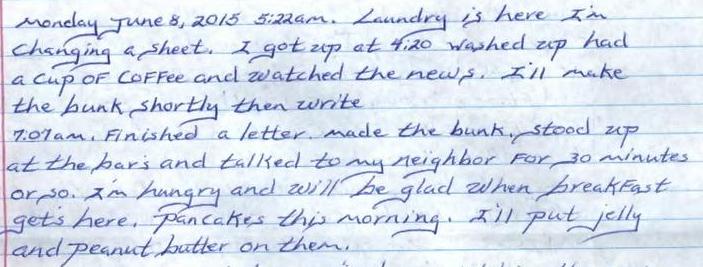 Monday June 8, 2015 5:22am. Laundry is here I'm
changing a sheet. I got up at 4:20 washed up had
a cup of coffee and watched the news. I'll make
the bunk shortly then write
7:07am. Finished a letter. made the bunk, stood up
at the bars and talked to my neighbor for 30 minutes
or so. I'm hungry and will be glad when breakfast
gets here. Pancakes this morning. I'll put jelly
and peanut butter on them.